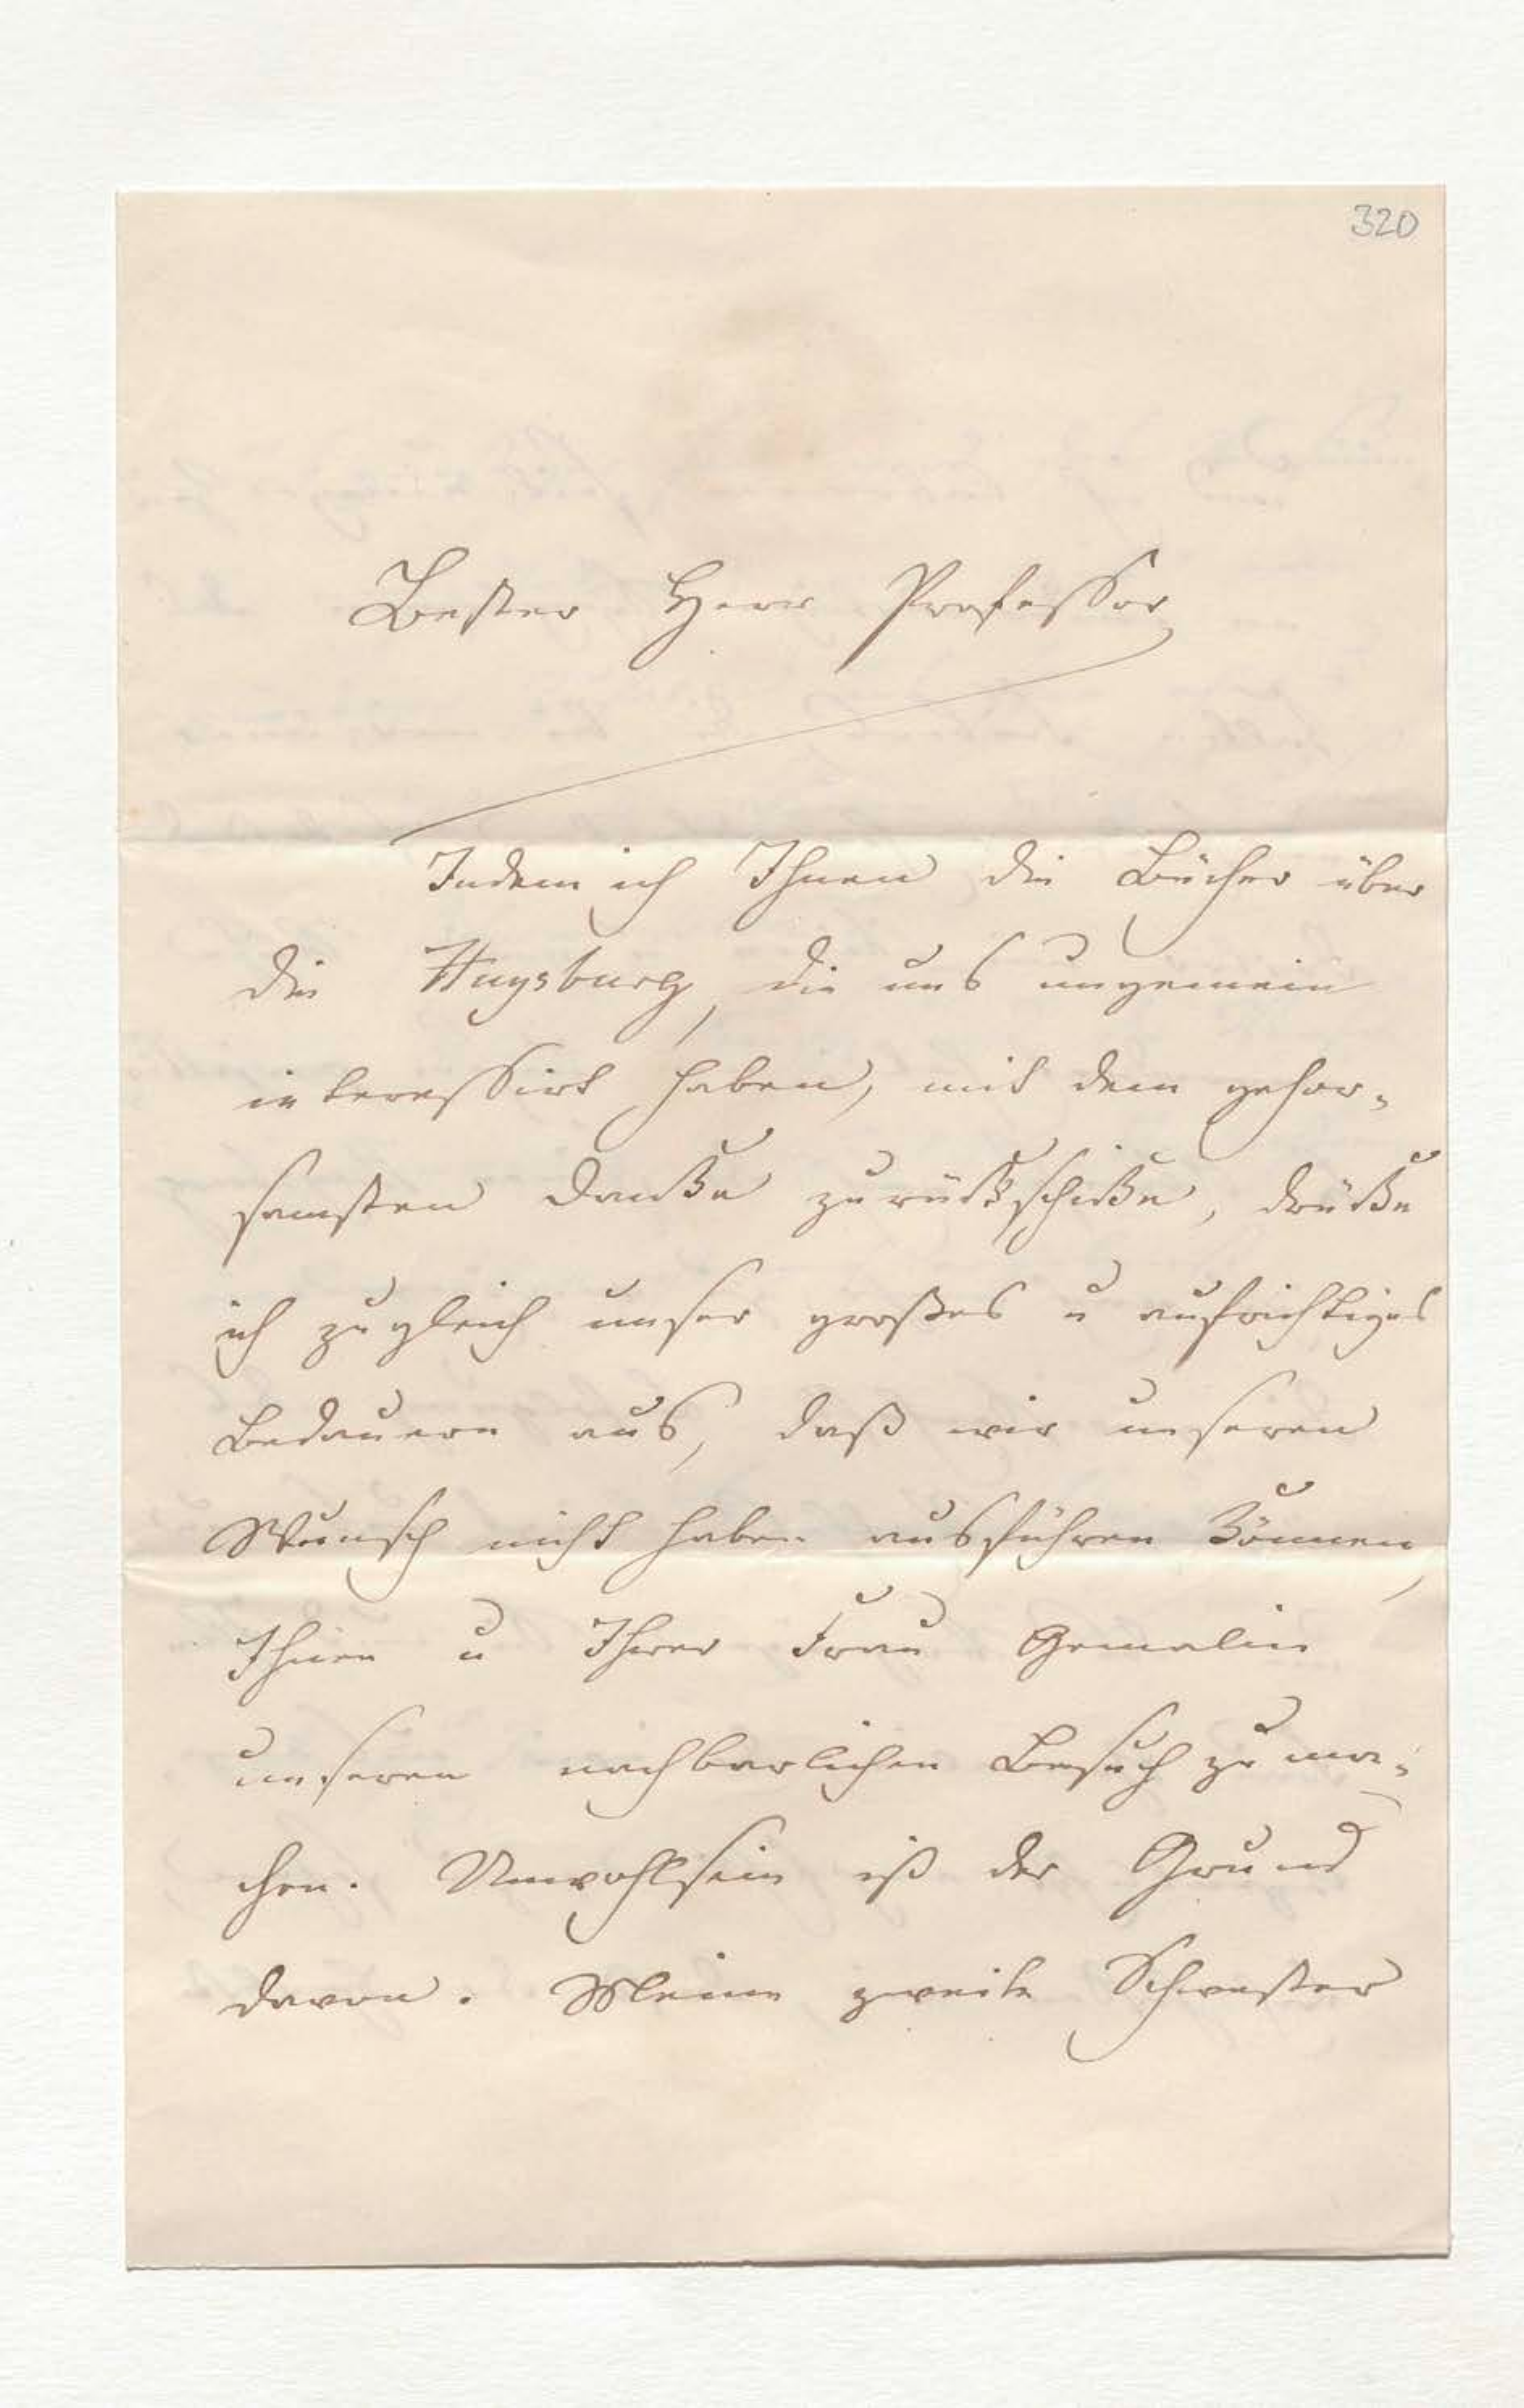 320
Bester Herr Professor
Indem ich Ihnen die Bücher über
die Huysburg, die uns ungemein
interessirt haben, mit dem gehor-
samsten Danke zurückschicke, drücke
ich zugleich unser großes u aufrichtiges
Bedauern aus, daß wir unseren
Wunsch nicht haben ausführen können,
Ihnen u Ihrer Frau Gemalin
unseren nachbarlichen Besuch zu ma-
chen. Unwohlsein ist der Grund
davon. Meine zweite Schwester